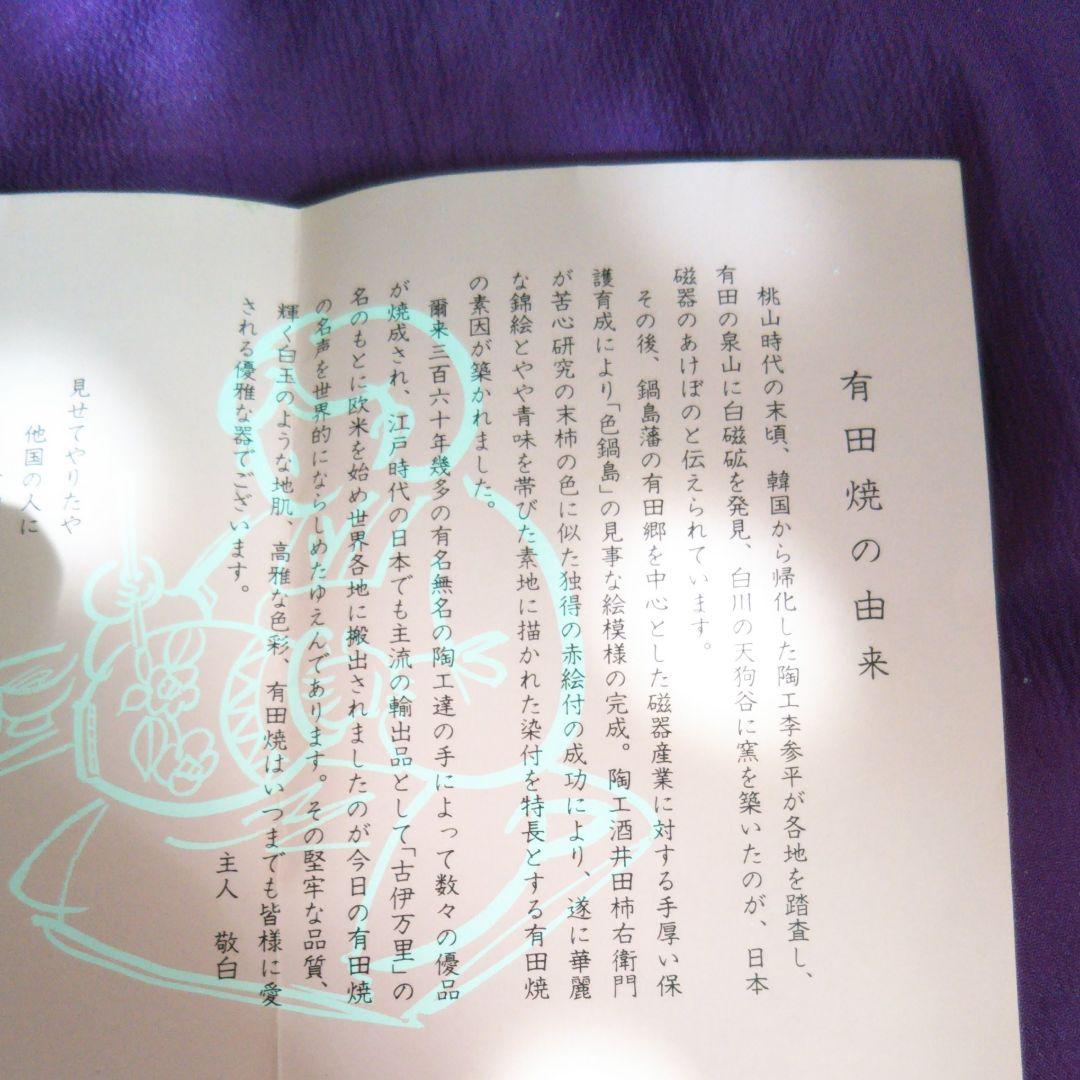 有田焼の由来
桃山時代の末頃、韓国から帰化した陶工李参平が各地を踏査し、
有田の泉山に白磁砿を発見、白川の天狗谷に窯を築いたのが、日本
磁器のあけぼのと伝えられています。
その後、鍋島藩の有田郷を中心とした磁器産業に対する手厚い保
護育成により「色鍋島」の見事な絵模様の完成。陶工酒井田柿右衛門
が苦心研究の末柿の色に似た独得の赤絵付の成功により、遂に華麗
な錦絵とやや青味を帯びた素地に描かれた染付を特長とする有田焼
の素因が築かれました。
爾来三百六十年幾多の有名無名の陶工達の手によって数々の優品
が焼成され、江戸時代の日本でも主流の輸出品として「古伊万里」の
名のもとに欧米を始め世界各地に搬出されましたのが今日の有田焼
の名声を世界的にならしめたゆえんであります。その堅牢な品質、
輝く白玉のような地肌、高雅な色彩、有田焼はいつまでも皆様に愛
される優雅な器でございます。
主人 敬白
見せてやりたや
他国の人に